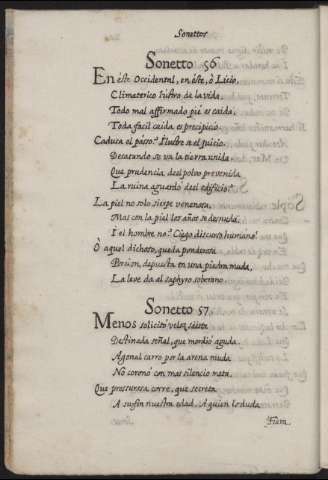 Sonettos
Sonetto 56
En este Occidental, en este, ô Licio,
Climaterico lustro de la vida,
Todo mal affirmado pié es caida,
Toda facil caida es precipicio.
Caduca el passo? Ilustre se el juicio.
Desatando se va la tierra unida
Que prudencia del polvo prevenida
La ruina aguardo del edificio?
La piel no solo sierpe venenosa
Mas con la piel los años se desnuda,
I el hombre no? Ciego discurso humano!
Ô aquel dichoso, que la ponderosa
Porcion, depuesta en una piedra muda,
La leve da al zaphyro soberano.
Sonetto 57
Menos solicitò veloz saeta
Destinada señal, que mordiò aguda
Agonal carro por la arena muda
No coronò con mas silencio meta,
Que pressurosa corre, que secreta
A su fin nuestra edad. A quien lo duda
Fiera